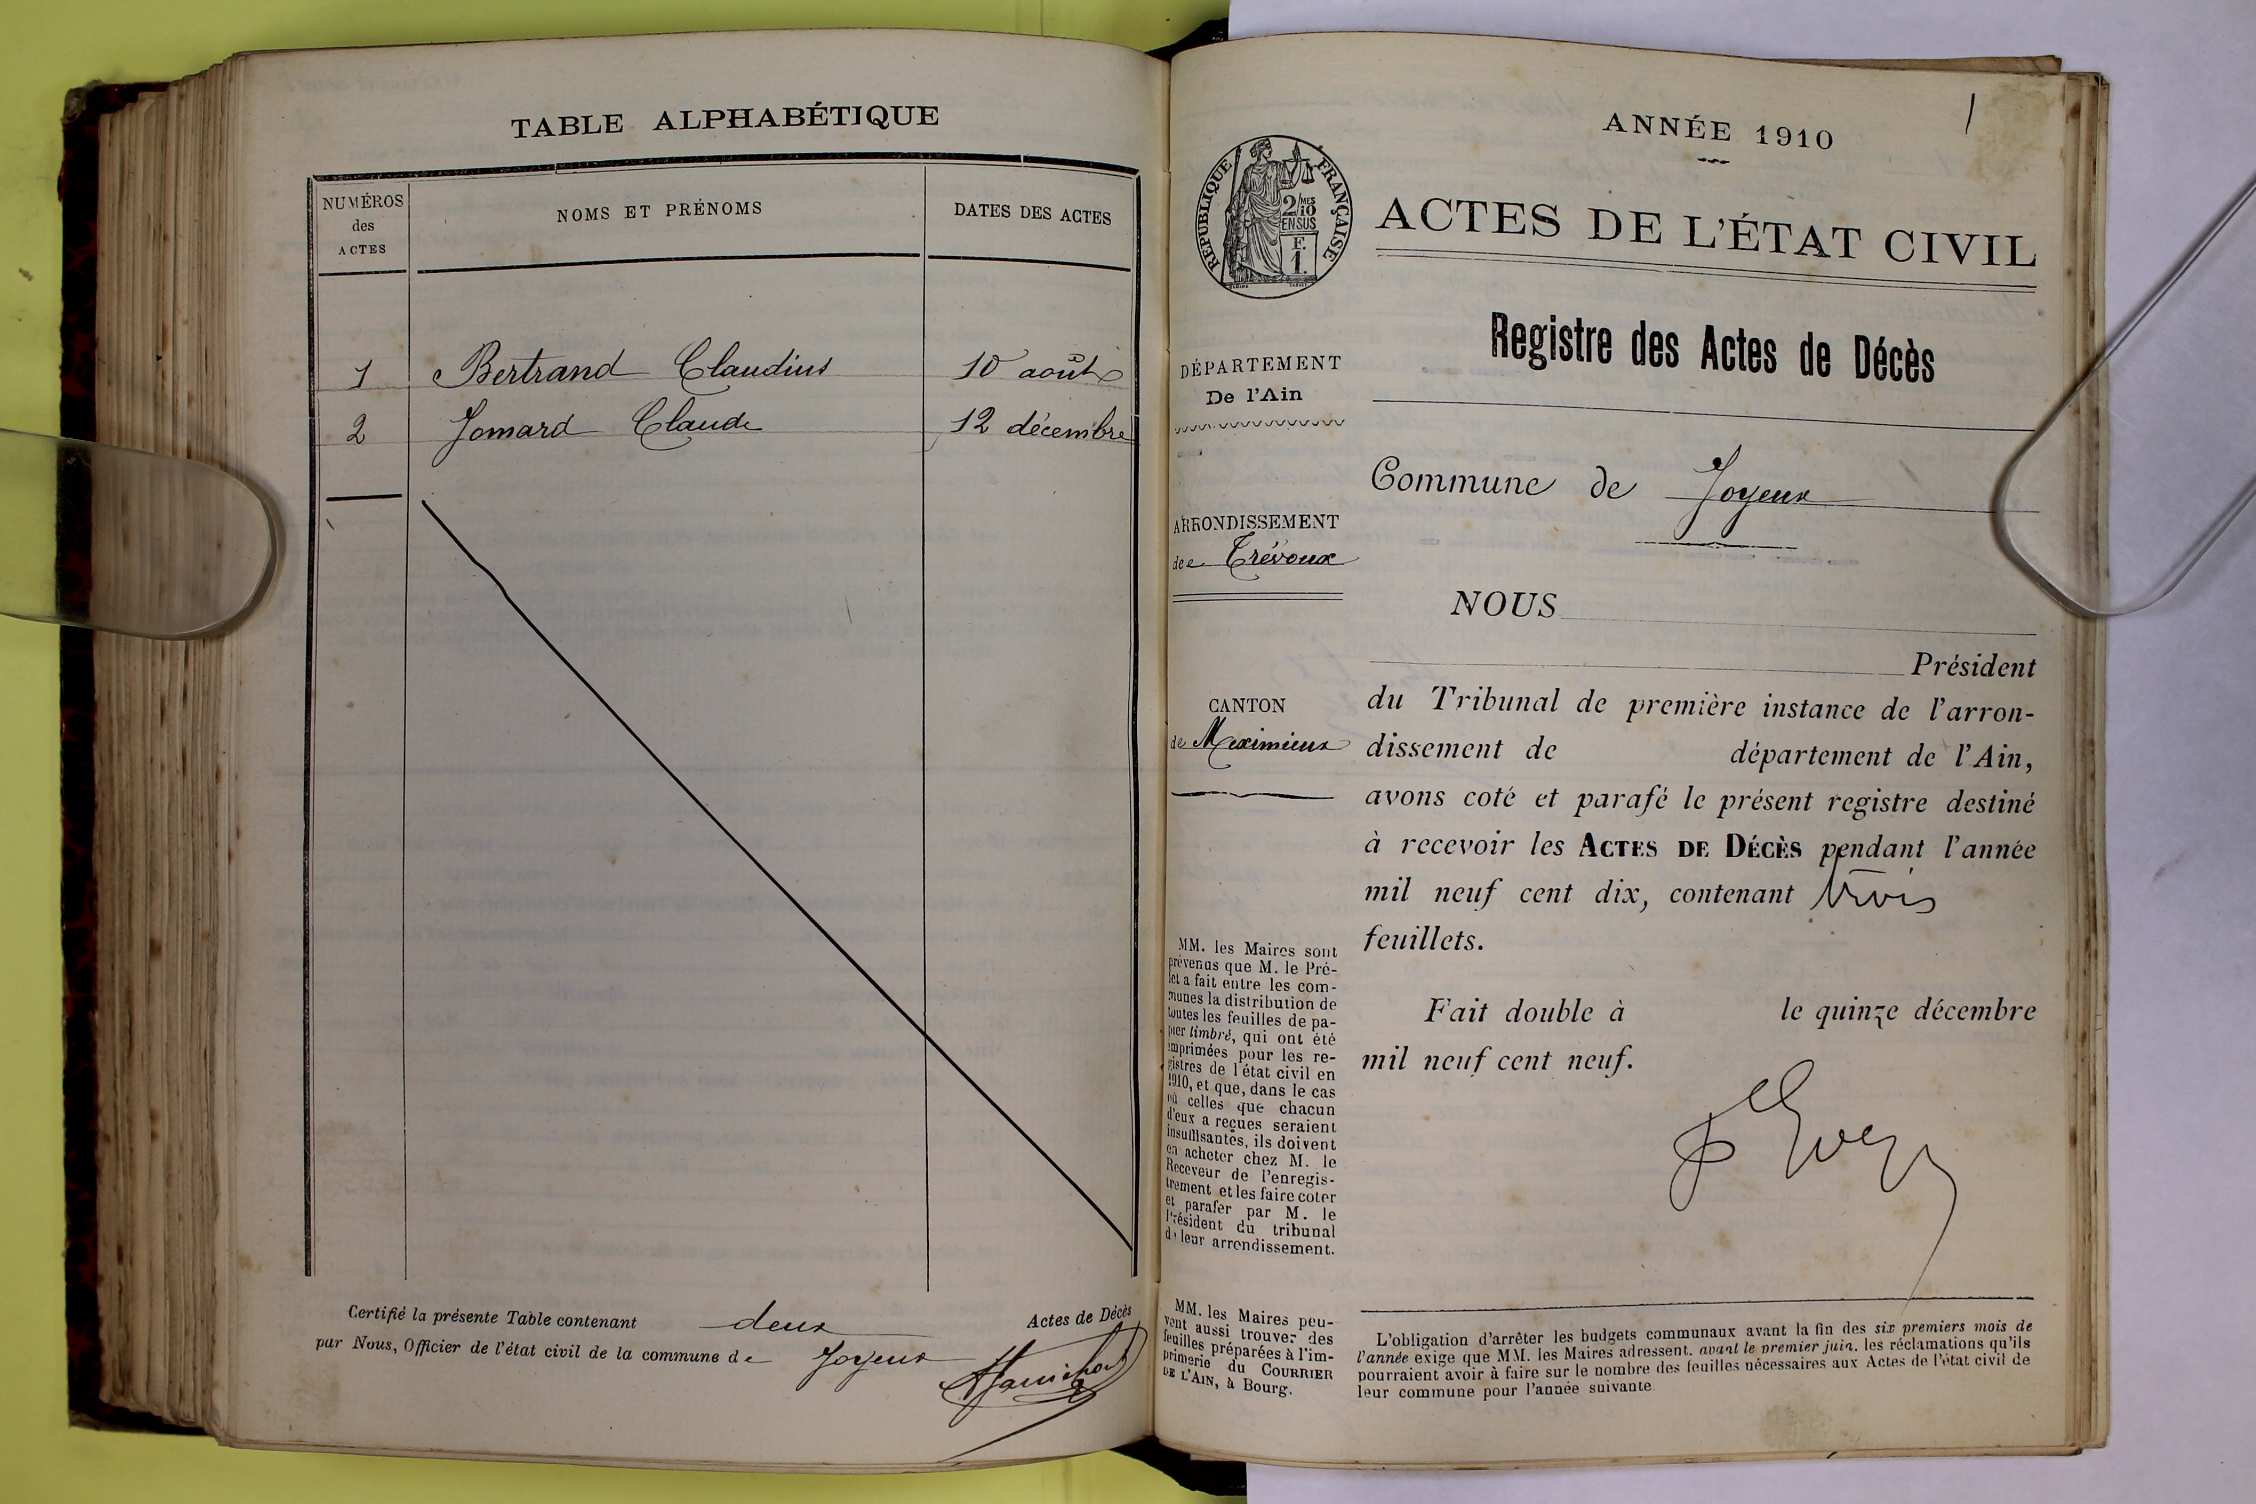 TABLE ALPHABÉTIQUE
NUMÉROS
des
ACTES
NOMS ET PRÉNOMS
DATES DES ACTES
1 Bertrand Claudius 10 août
2 Jomard Claude 12 décembre
Certifié la présente Table contenant deux Actes de Décès
par Nous, Officier de l'état civil de la commune de Joyeux
1
ANNÉE 1910
RÉPUBLIQUE FRANÇAISE
2/10 MES
EN SUS
F.
1.
ACTES DE L'ÉTAT CIVIL
Registre des Actes de Décès
DÉPARTEMENT
De l'Ain
ARRONDISSEMENT
de Trévoux
CANTON
de Meximieux
MM. les Maires sont
prévenus que M. le Pré-
fet a fait entre les com-
munes la distribution de
toutes les feuilles de pa-
pier timbré, qui ont été
imprimées pour les re-
gistres de l'état civil en
1910, et que, dans le cas
où celles que chacun
d'eux a reçues seraient
insuffisantes, ils doivent
en acheter chez M. le
Receveur de l'enregis-
trement et les faire coter
et parafer par M. le
Président du tribunal
de leur arrondissement.
MM. les Maires peu-
vent aussi trouver des
feuilles préparées à l'im-
primerie du COURRIER
DE L'AIN, à Bourg.
Commune de Joyeux
NOUS
Président
du Tribunal de première instance de l'arron-
dissement de département de l'Ain,
avons coté et parafé le présent registre destiné
à recevoir les ACTES DE DÉCÈS pendant l'année
mil neuf cent dix, contenant trois
feuillets.
Fait double à le quinze décembre
mil neuf cent neuf.
L'obligation d'arrêter les budgets communaux avant la fin des six premiers mois de
l'année exige que MM. les Maires adressent, avant le premier juin, les réclamations qu'ils
pourraient avoir à faire sur le nombre des feuilles nécessaires aux Actes de l'état civil de
leur commune pour l'année suivante